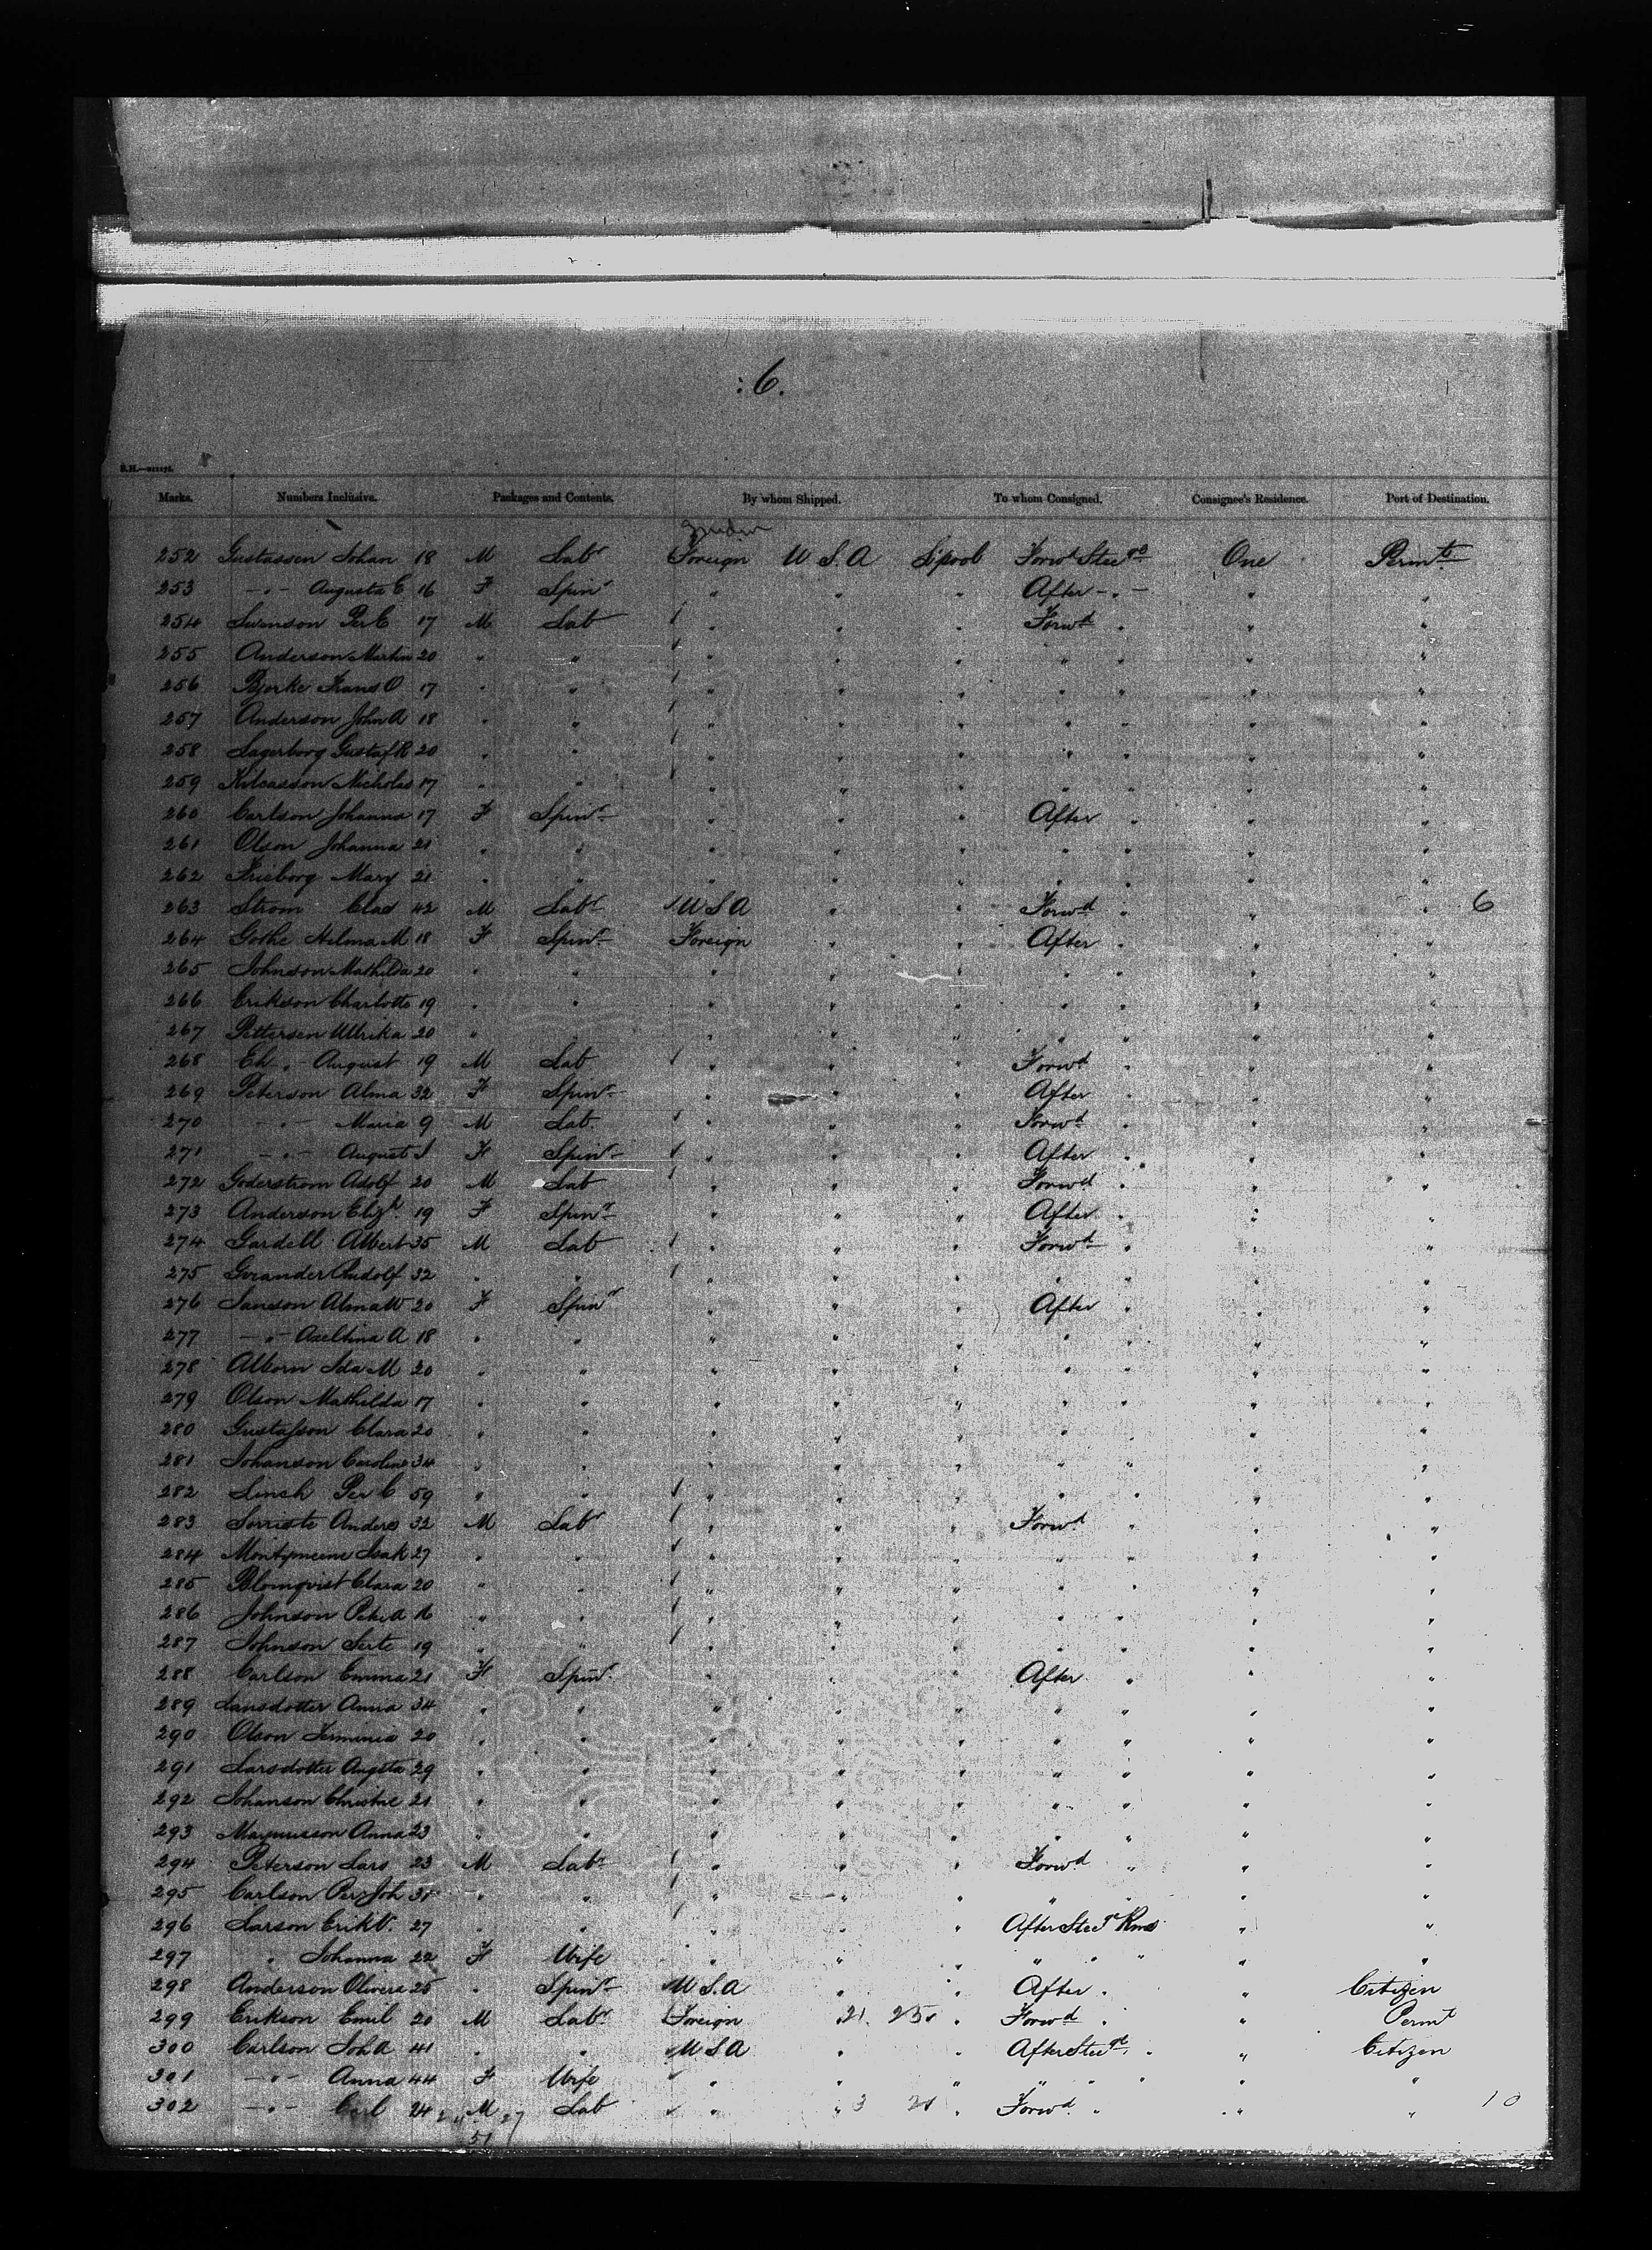 : 6.
Marks. Numbers Inclusive. Packages and Contents. By whom Shipped. To whom Consigned. Consignee's Residence. Port of Destination.
252 Gustassen Johan 18 M Labr Foreign U S. A Lpool Forwd Steege One Permt
253 - " - Augusta C 16 F Spinr " " " After - " - " "
254 Swenson Per C 17 M Lab " " " Forwd " " "
255 Anderson Martin 20 " " " " " " " " "
256 Bjorke Frans O 17 " " " " " " " " "
257 Anderson John A 18 " " " " " " " " "
258 Lagerborg Gustaf R 20 " " " " " " " " "
259 Nicholas 17 " " " " " " " " "
260 Carlson Johanna 17 F Spinr " " " After " " "
261 Olson Johanna 21 " " " " " " " " "
262 Frieborg Mary 21 " " " " " " " " "
263 Strom Clas 42 M Labr U S A " " Forwd " " " 6
264 Gothe Hilma M 18 F Spinr Foreign " " After " " "
265 Johnson Mathilda 20 " " " " " " " " "
266 Erikson Charlotte 19 " " " " " " " " "
267 Pettersen Ullrika 20 " " " " " " " " "
268 Ek " - August 19 M Lab " " " Forwd " " "
269 Peterson Alma 32 F Spinr " " " After " " "
270 - " - Maria 9 M Lab. " " " Forwd " " "
271 - " - August F Spinr " " " After " " "
272 Goderstrom Adolf 20 M Lab " " " Forwd " " "
273 Anderson Elizh 19 F Spinr " " " After " " "
274 Gardell Albert 35 M Lab " " " Forwd " " "
275 Rudolf 32 " " " " " " " " "
276 Janson Alma W 20 F Spinr " " " After " " "
277 - " - Axeltina A 18 " " " " " " " " "
278 Alborn Ida M 20 " " " " " " " " "
279 Olson Mathilda 17 " " " " " " " " "
280 Gustafson Clara 20 " " " " " " " " "
281 Johanson Caroline 34 " " " " " " " " "
282 Per C 59 " " " " " " " " "
283 Anders 32 M Labr " " " Forwd " " "
284 Isak 27 " " " " " " " " "
285 Blomqvist Clara 20 " " " " " " " " "
286 Johnson Peter A 16 " " " " " " " " "
287 Johnson 19 " " " " " " " " "
288 Carlson Emma 21 F Spinr. " " " After " " "
289 Lansdotter Anna 34 " " " " " " " " "
290 Olson 20 " " " " " " " " "
291 Larsdotter Augsta 29 " " " " " " " " "
292 Johanson Christine 21 " " " " " " " " "
293 Magnusson Anna 23 " " " " " " " " "
294 Peterson Lars 23 M Labr " " " Forwd " " "
295 Carlson Per Joh 31 " " " " " " " " "
296 Larson Erik V. 27 " " " " " After Steege Rms " "
297 " Johanna 22 F Wife " " " " " " " "
298 Anderson Olivera 25 " Spinr U S. A " " After " " Citizen
299 Erikson Emil 20 M Labr Foreign 21 25 " Forwd " " Permt
300 Carlson Joh A 41 " " U S A " " After Steege " " Citizen
301 - " - Anna 44 F Wife " " " " " " " "
302 - " - Carl 24 M Lab " " 3 21 " Forwd " " " 10
24 27
51